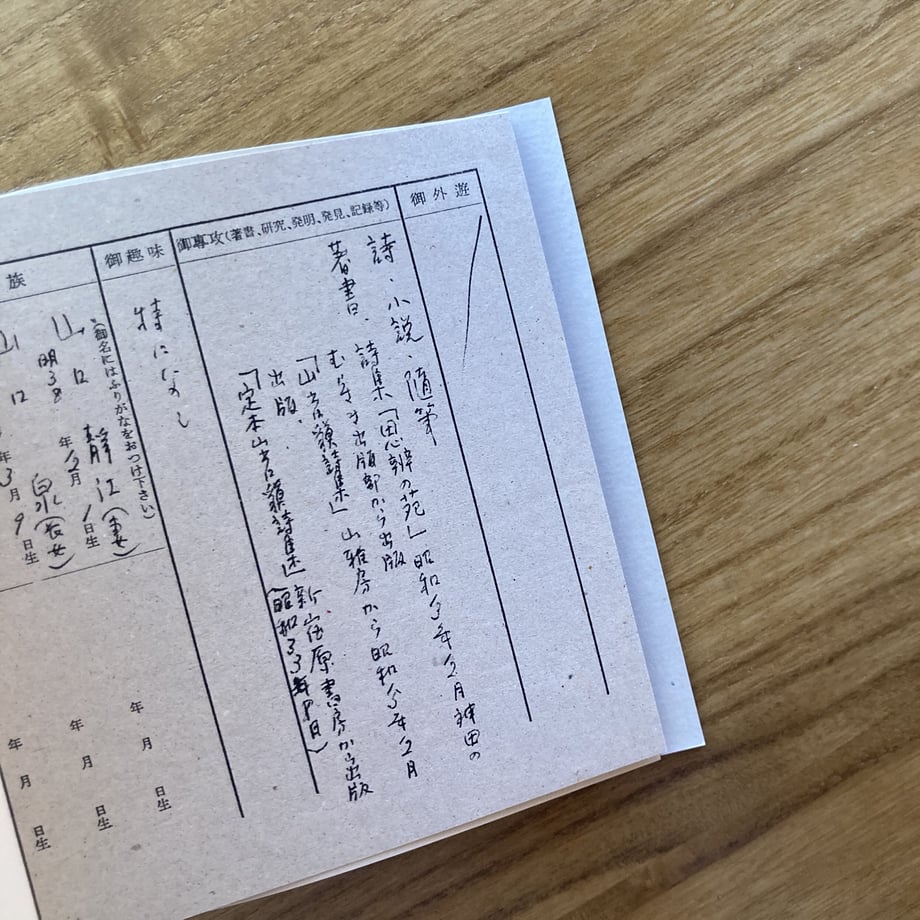 御外遊
御専攻(著書、研究、発明、発見、記録等)
詩、小説、随筆
著書、詩集「思辨の苑」昭和 年2月神田の
むらさき出版部から出版
「山之口貘詩集」山雅房から昭和 年2月
出版、
「定本山之口貘詩集」新宿原書房から出版
(昭和33年 月)
御趣味
特になし
族
(御名にはふりがなをおつけ下さい)
静江(妻)
明38年12月1日生
泉(長女)
年3月9日生
年 月 日生
年 月 日生
年 月 日生